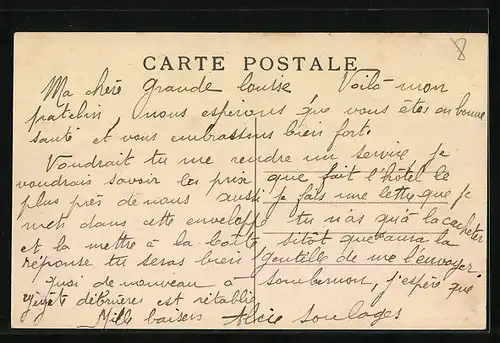 8
CARTE POSTALE
Ma chère grande Louise, Voilà mon
patelin, nous espérons que vous êtes en bonne
santé et vous embrassons bien fort.
Voudrait tu me rendre un service je
voudrais savoir les prix que fait l'hôtel le
plus près de nous aussi je fais une lettre que je
mets dans cette enveloppe tu n'as qu'à la cacheter
et la mettre à la boîte sitôt que aura la
réponse tu seras bien gentille de me l'envoyer
quoi de nouveau à Sombernon, j'espère que
débrières est rétablie
Mille baisers Alice Soulages